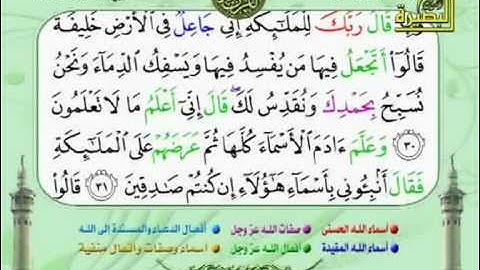 البصيرة
وَإِذْ قَالَ رَبُّكَ لِلْمَلَٰٓئِكَةِ إِنِّى جَاعِلٌ فِى ٱلْأَرْضِ خَلِيفَةً
قَالُوٓا۟ أَتَجْعَلُ فِيهَا مَن يُفْسِدُ فِيهَا وَيَسْفِكُ ٱلدِّمَآءَ وَنَحْنُ
نُسَبِّحُ بِحَمْدِكَ وَنُقَدِّسُ لَكَ ۖ قَالَ إِنِّىٓ أَعْلَمُ مَا لَا تَعْلَمُونَ
﴿٣٠﴾ وَعَلَّمَ ءَادَمَ ٱلْأَسْمَآءَ كُلَّهَا ثُمَّ عَرَضَهُمْ عَلَى ٱلْمَلَٰٓئِكَةِ
فَقَالَ أَنۢبِـُٔونِى بِأَسْمَآءِ هَٰٓؤُلَآءِ إِن كُنتُمْ صَٰدِقِينَ ﴿٣١﴾ قَالُوا۟
أسماء الله الحسنى صفات الله عز وجل أفعال الدعاء والمسندة إلى الله
أسماء الله المقيدة أفعال الله عز وجل أسماء وصفات وأفعال منفية